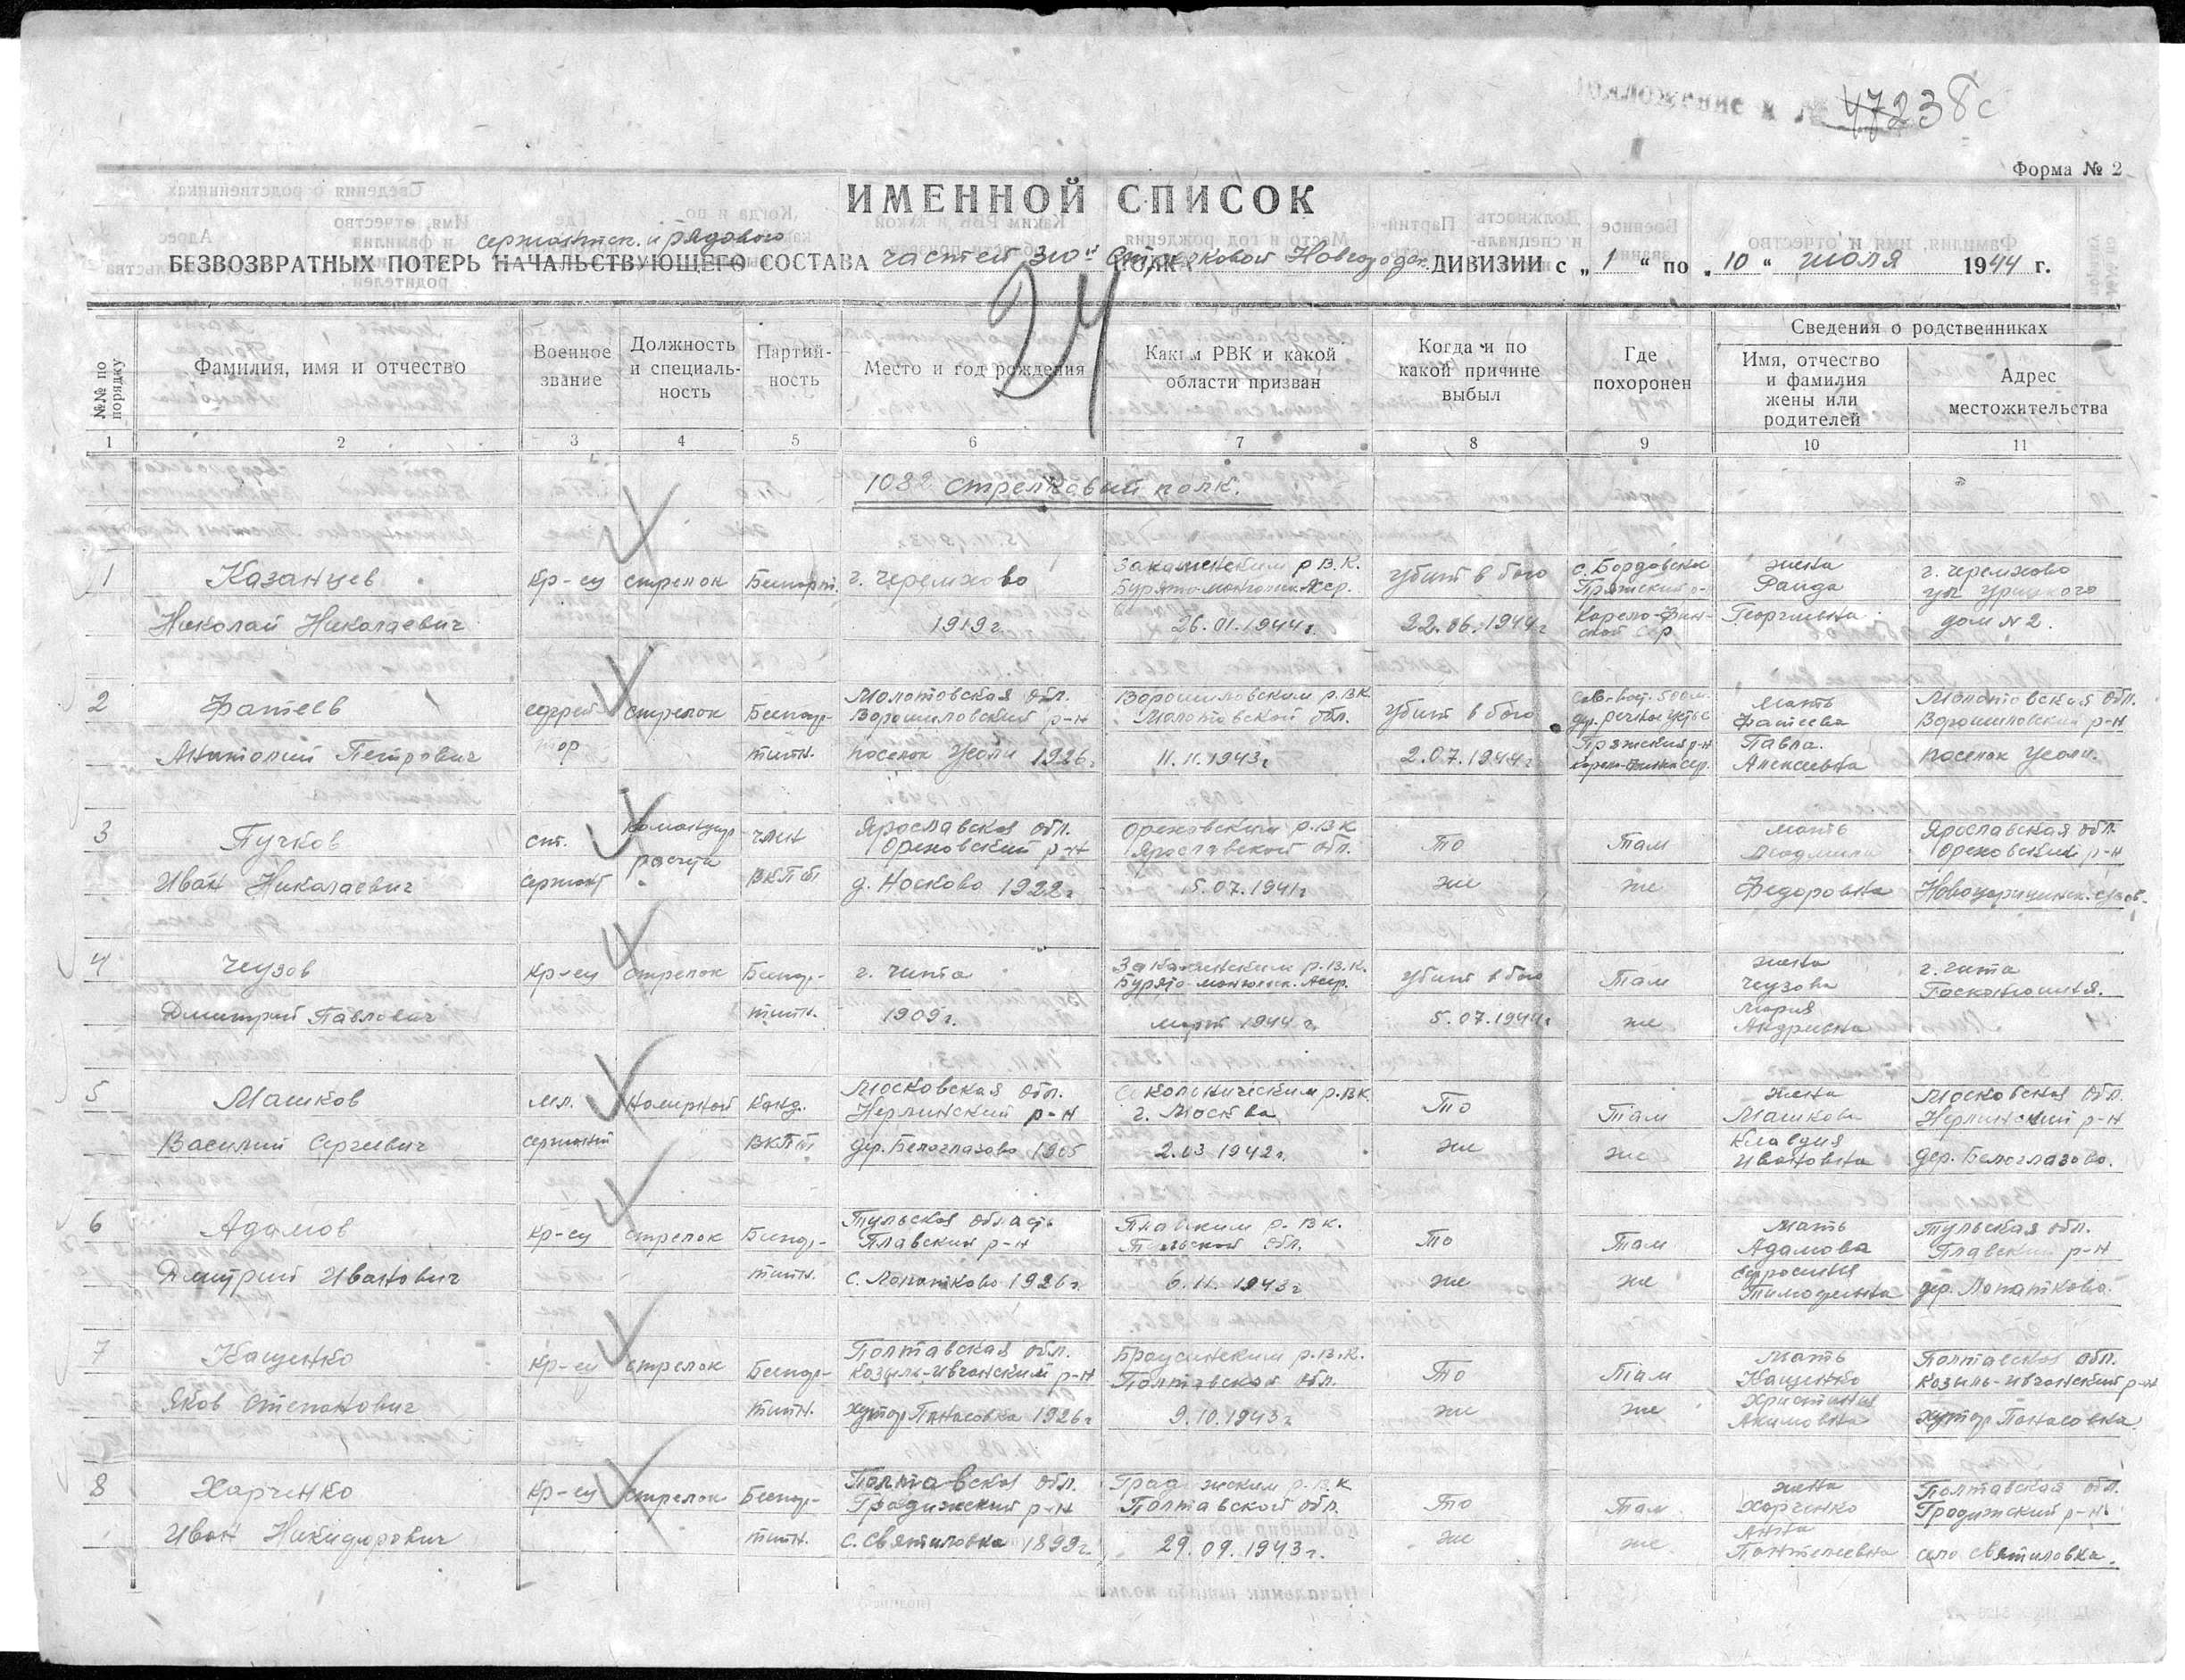 Приложение к № 47238с
Форма № 2
ИМЕННОЙ СПИСОК
сержантск. и рядового
БЕЗВОЗВРАТНЫХ ПОТЕРЬ НАЧАЛЬСТВУЮЩЕГО СОСТАВА частей 310й Стрелковой Новгородск. ДИВИЗИИ с „1“ по „10“ июля 1944 г.
24
№№ по порядку
Фамилия, имя и отчество
Военное звание
Должность и специальность
Партийность
Место и год рождения
Каким РВК и какой области призван
Когда и по какой причине выбыл
Где похоронен
Сведения о родственниках
Имя, отчество и фамилия жены или родителей
Адрес местожительства
1 2 3 4 5 6 7 8 9 10 11
стрелковый полк.
1 Казанцев кр-ец стрелок Беспарт. г. Черемхово Закаменским р.В.К. убит в бою жена г. Черемхово
Бурято-монгольск. Раида ул. Урицкого
Николай Николаевич 1919 г. 26.01.1944 г. 22.06.1944 г Карело-Фин- Георгиевна дом N 2.
2 Фатеев ефрей- стрелок Беспар- Молотовская обл. Ворошиловским р.ВК убит в бою мать Молотовская обл.
Ворошиловский р-н Молотовской обл. Фатеева Ворошиловский р-н
Анатолий Петрович тор тийн. поселок Усоли 1926 г 11.11.1943 г 2.07.1944 г Пряжский р-н Павла Алексеевна поселок Усоли.
3 Пучков ст. командир член Ярославская обл. р.ВК То Там мать Ярославская обл.
расчета р-н Ярославской обл. Людмила р-н
Иван Николаевич сержант ВКПб д. Носково 1922 г 15.07.1941 г же же Федоровна
4 Чеузов кр-ец стрелок Беспар- г. Чита Закаменским р.В.К. убит в бою Там жена г. Чита
Бурято-монгольск. Асср. Чеузова
Дмитрий Павлович тийн. 1909 г. март 1944 г. 5.07.1944 г же Мария Андреевна
5 Машков мл. Наводчик Канд. Московская обл. Сокольническим р.ВК То Там жена Московская обл.
р-н г. Москва Машкова р-н
Василий Сергеевич сержант ВКПб дер. Белоглазово 1905 2.03.1942 г. же же Клавдия Ивановна дер. Белоглазово.
6 Адамов кр-ец стрелок Беспар- Тульская область Плавским р.ВК. То Там мать Тульская обл.
Плавский р-н Тульской обл. Адамова Плавский р-н
Дмитрий Иванович тийн. с. Лопатково 1926 г. 6.11.1943 г же же Ефросиния Тимофеевна дер. Лопатково.
7 Кащенко кр-ец стрелок Беспар- Полтавская обл. р.В.К. То Там мать Полтавская обл.
р-н Полтавской обл. Кащенко р-н
Яков Степанович тийн. хутор Панасовка 1926 г 9.10.1943 г же же Христиния Акимовна хутор Панасовка
8 Харченко кр-ец стрелок Беспар- Полтавская обл. Градижским р.ВК То Там жена Полтавская обл.
Градижский р-н Полтавской обл. Харченко Градижский р-н.
Иван Никифорович тийн. с. Святиловка 1899 г. 29.09.1943 г. же же Анна Пантелеевна село Святиловка.